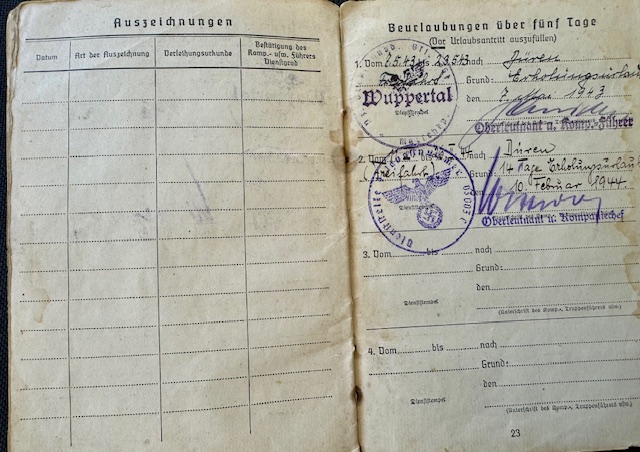 Auszeichnungen
Datum
Art der Auszeichnung
Verleihungsurkunde
Bestätigung des
Komp.- usw. Führers
Dienstgrad
Beurlaubungen über fünf Tage
(Vor Urlaubsantritt auszufüllen)
1. Vom 7.5.43 bis 23.5.43 nach Düren
Grund: Erholungsurlau
Wuppertal
den 7. Mai 1943
Dienststempel
Oberleutnant u. Komp.-Führer
2. Vom bis 44 nach Düren
(Freifahrt) Grund: 14 Tage Erholungsurlaub
10. Februar 1944
Dienststelle Feldpostnummer 03003
Oberleutnant u. Kompaniechef
3. Vom bis nach
Grund:
den
Dienststempel
(Unterschrift des Komp.-, Truppenführers usw.)
4. Vom bis nach
Grund:
den
Dienststempel
(Unterschrift des Komp.-, Truppenführers usw.)
23